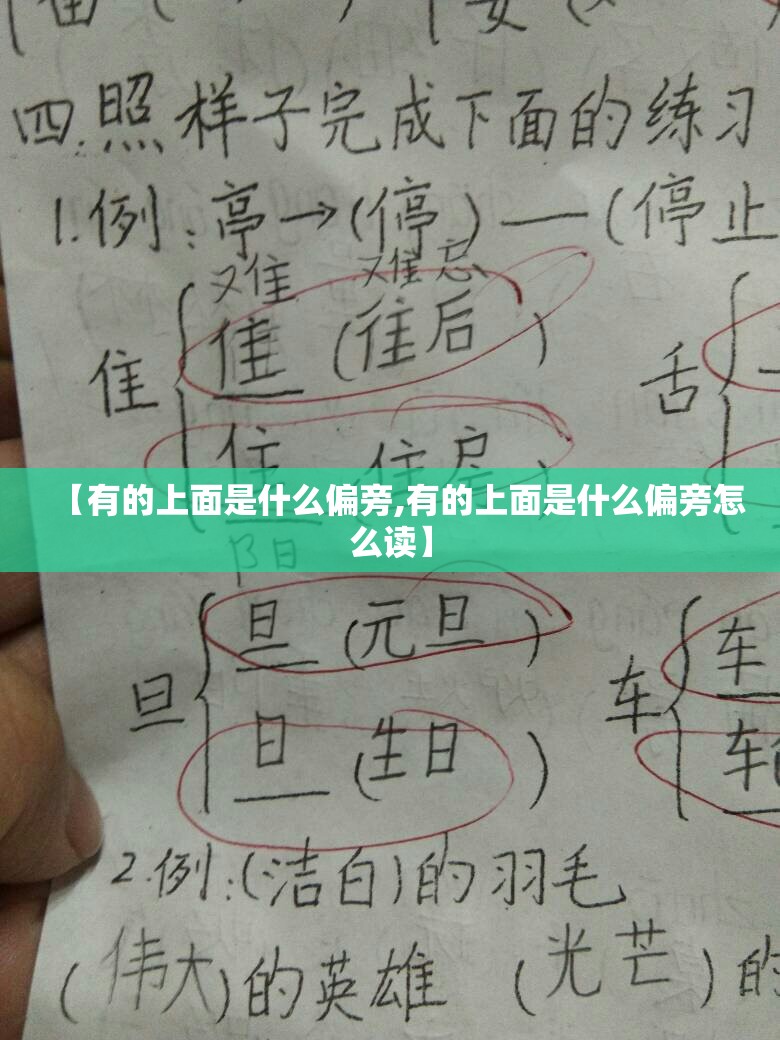 四.照样子完成下面的练习
1.例:亭→(停)—(停止
难 难忘
隹 (往后)
隹 舌
住 住房
【有的上面是什么偏旁,有的上面是什么偏旁怎
么读】
阝日
旦 (元旦) 车
旦 车
日 (生日) 车
2.例:(洁白)的羽毛
(伟大)的英雄 (光芒)的